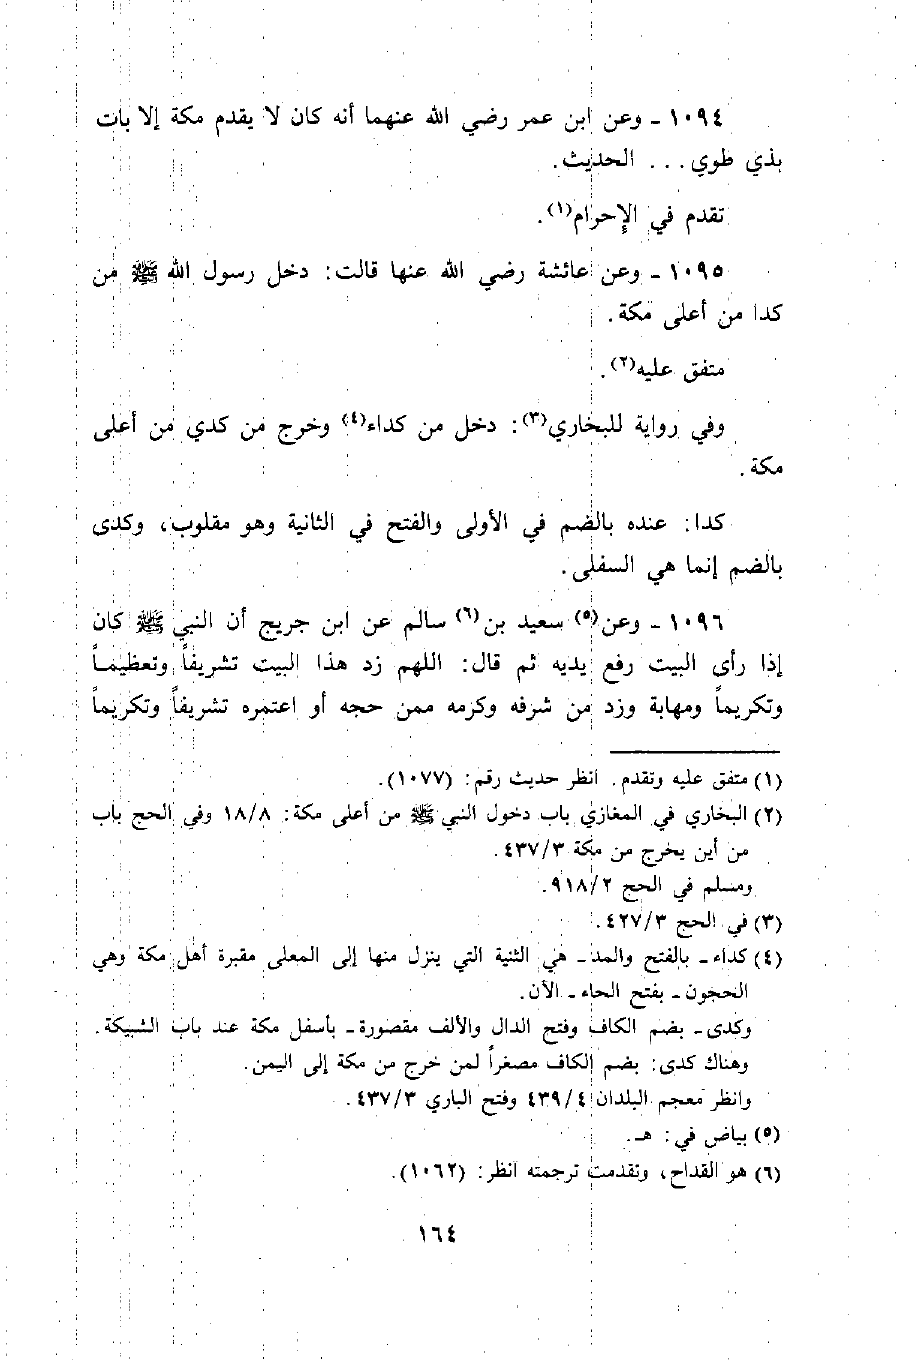 ١٠٩٤ ـ وعن ابن عمر رضي الله عنهما أنه كان لا يقدم مكة إلا بات
بذي طوي... الحديث.
تقدم في الإحرام(١).
١٠٩٥ ـ وعن عائشة رضي الله عنها قالت: دخل رسول الله ﷺ من
كدا من أعلى مكة.
متفق عليه(٢).
وفي رواية للبخاري(٣): دخل من كداء(٤) وخرج من كدي من أعلى
مكة.
كدا: عنده بالضم في الأولى والفتح في الثانية وهو مقلوب، وكدى
بالضم إنما هي السفلى.
١٠٩٦ ـ وعن(٥) سعيد بن(٦) سالم عن ابن جريج أن النبي ﷺ كان
إذا رأى البيت رفع يديه ثم قال: اللهم زد هذا البيت تشريفاً وتعظيمـاً
وتكريماً ومهابة وزد من شرفه وكرمه ممن حجه أو اعتمره تشريفاً وتكريماً
(١) متفق عليه وتقدم. انظر حديث رقم: (١٠٧٧).
(٢) البخاري في المغازي باب دخول النبي ﷺ من أعلى مكة: ١٨/٨ وفي الحج باب
من أين يخرج من مكة ٤٣٧/٣.
ومسلم في الحج ٩١٨/٢.
(٣) في الحج ٤٢٧/٣.
(٤) كداء ـ بالفتح والمد ـ هي الثنية التي ينزل منها إلى المعلى مقبرة أهل مكة وهي
الحجون ـ بفتح الحاء ـ الآن.
وكدى ـ بضم الكاف وفتح الدال والألف مقصورة ـ بأسفل مكة عند باب الشبيكة.
وهناك كدى: بضم الكاف مصغراً لمن خرج من مكة إلى اليمن.
وانظر معجم البلدان ٤٣٩/٤ وفتح الباري ٤٣٧/٣.
(٥) بياض في: هـ.
(٦) هو القداح، وتقدمت ترجمته انظر: (١٠٦٢).
١٦٤